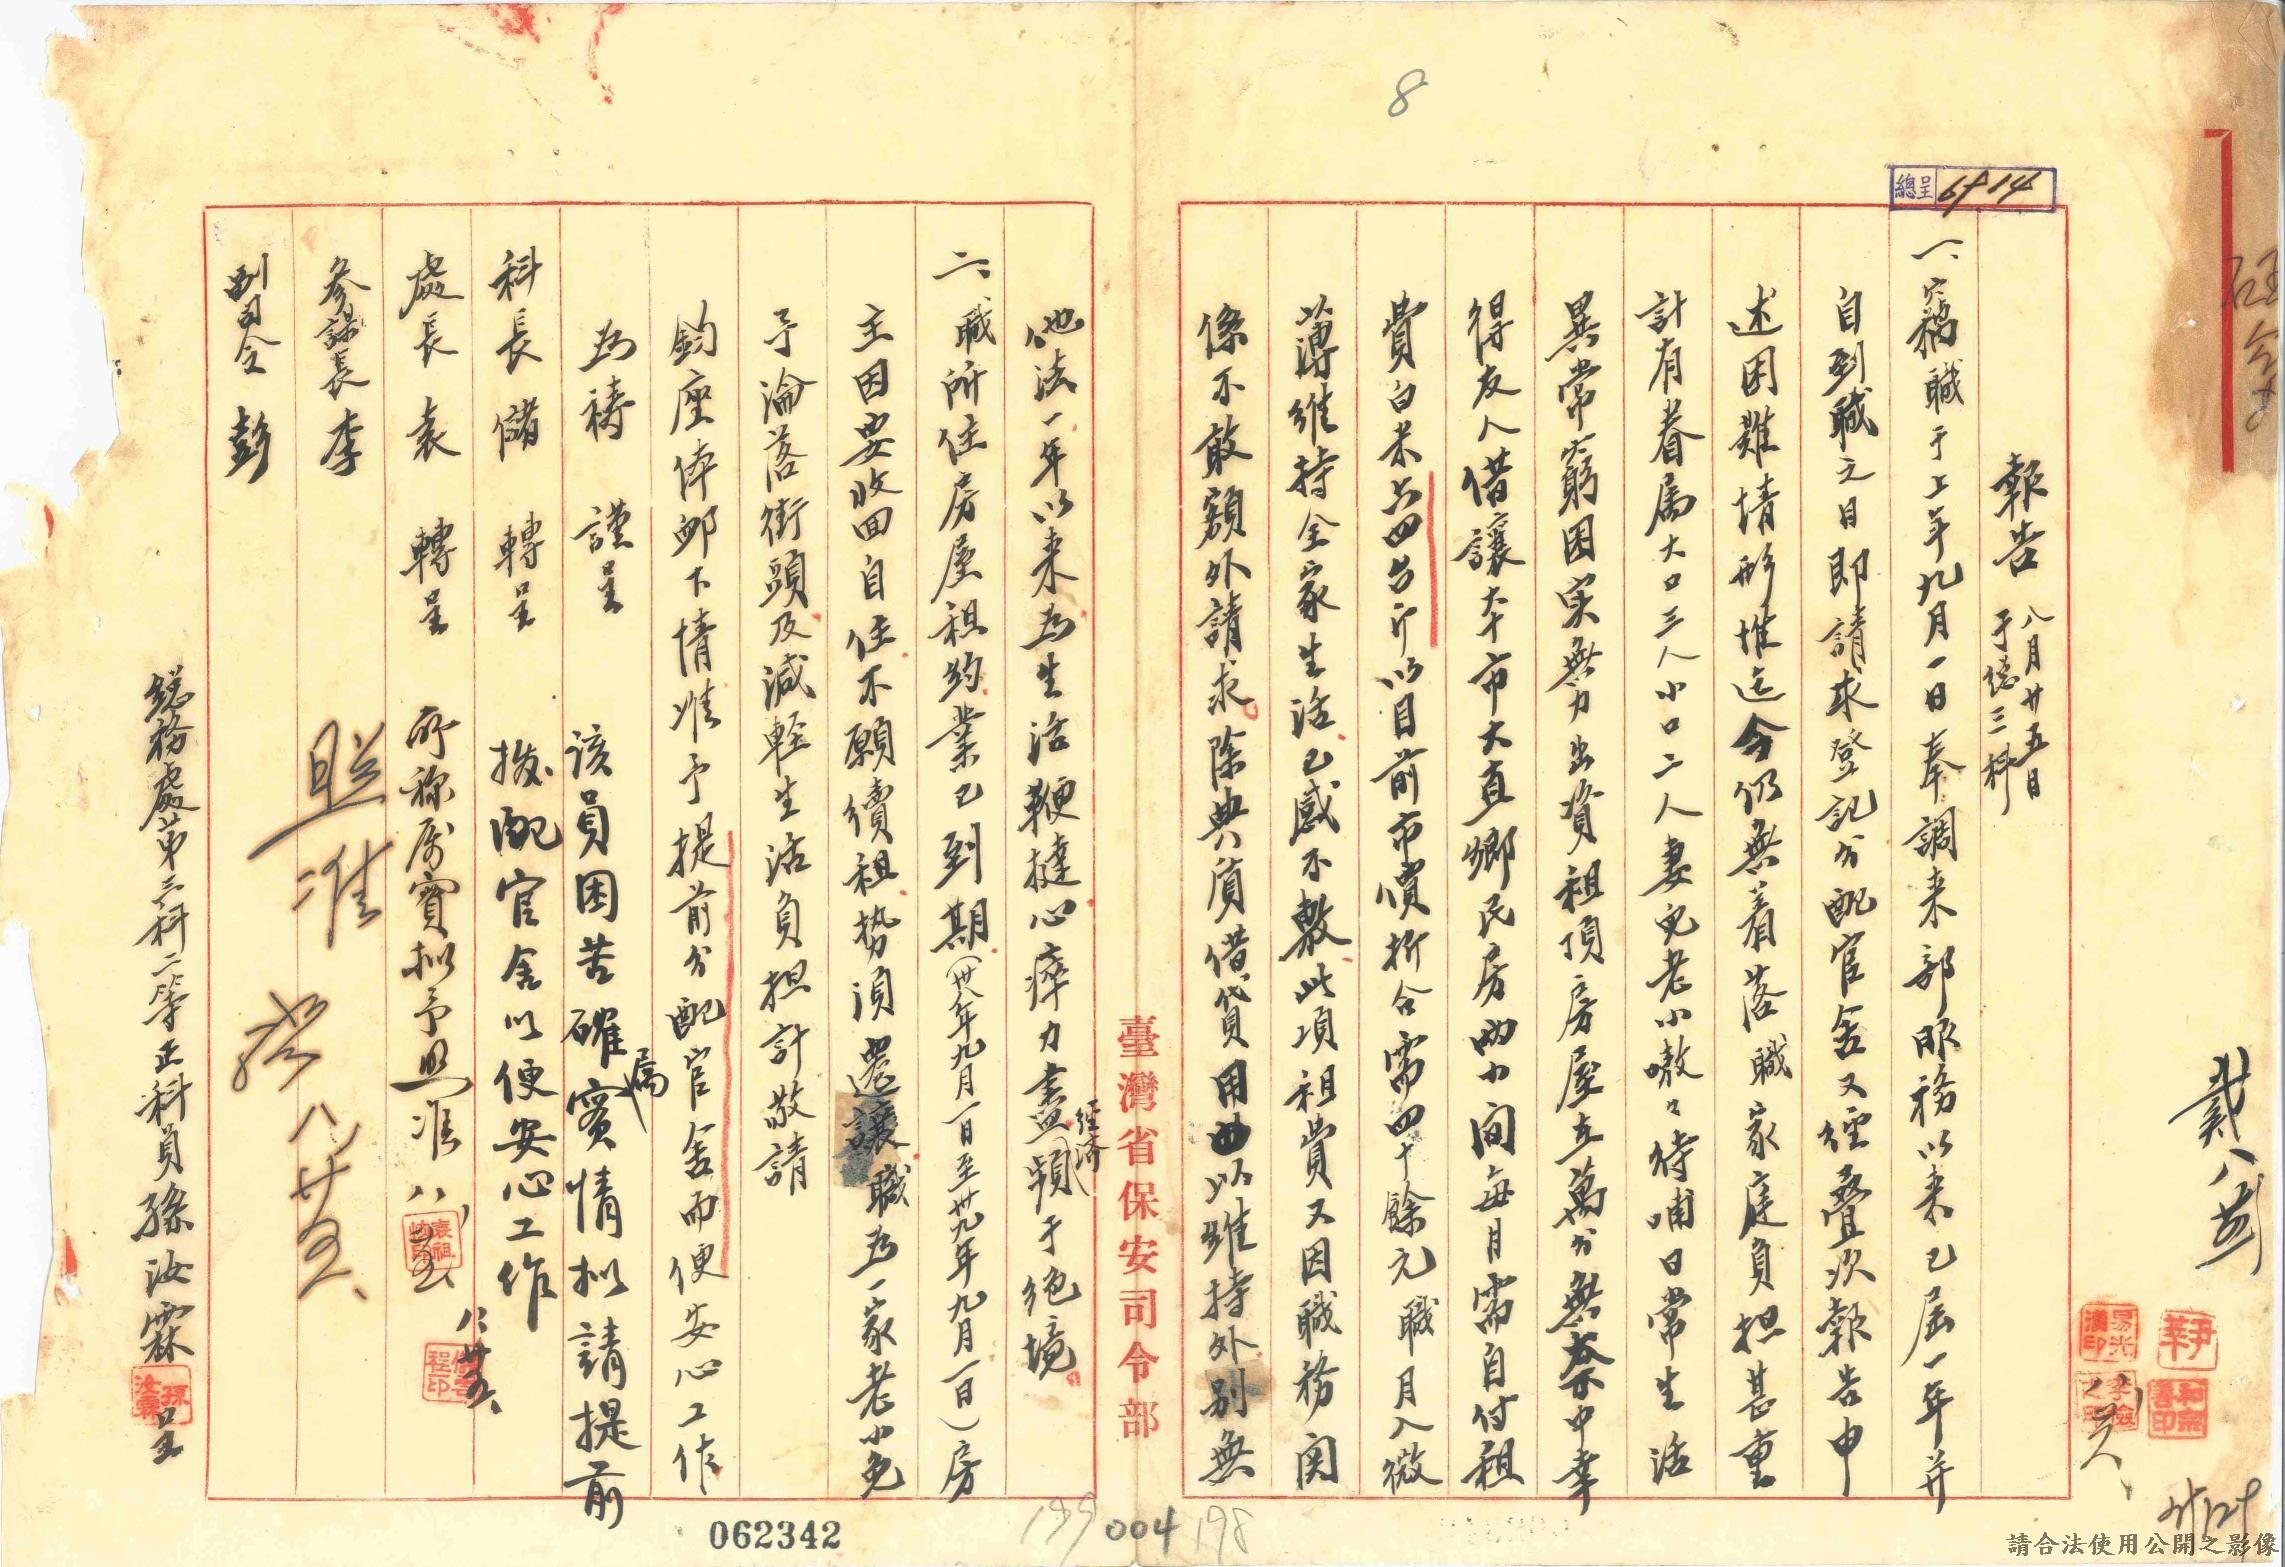 8
總呈 6814
報告 八月廿五日
于總三科
一、竊職于上年九月一日奉調來部服務以來已屆一年并
自到職之日即請求登記分配官舍又經疊次報告申
述困難情形惟迄今仍無着落職家庭負担甚重
計有眷属大口三人小口二人妻兒老小嗷々待哺日常生活
異常窮困实無力出資租頂房屋五萬分無奈中幸
得友人借讓本市大直鄉民房兩小間每月需自付租
費白米六四台斤以目前市價折合需四十餘元職月入微
薄維持全家生活已感不敷此項租費又因職務関
係不敢額外請求除典質借貸用以維持外別無
他法一年以來為生活鞭撻心瘁力盡經濟瀕于絕境
二、職所住房屋租約業已到期（卅八年九月一日至卅九年九月一日）房
主因要收回自住不願續租勢須遷讓職為一家老小免
于淪落街頭及減輕生活負担計敬請
鈞座俾卹下情惟予提前分配官舍而便安心工作
為禱 謹呈
科長 儲 轉呈
處長 袁 轉呈
參謀長 李
副司令 彭
該員困苦確属實情拟請提前
撥配官舍以便安心工作
八、廿五、
所称屬實拟予照准
照准
八、廿五、
總務處第三科二等正科員孫汝霖 呈
孫汝霖
臺灣省保安司令部
062342
199 004 198
請合法使用公開之影像